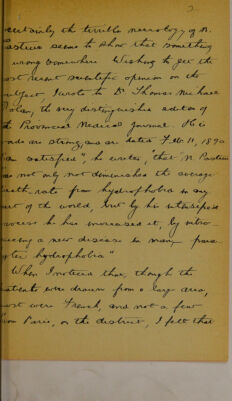 2
certainly the terrible necrology of M.
Pasteur seems to show that something
wrong somewhere. Wishing to get the
most recent scientific opinion on the
subject I wrote to Dr Thomas
Dolan, the very distinguished editor of
the Provincial Medical Journal. His
words are strong, and are dated Feb. 11, 1890
"am satisfied", he writes, "that M. Pasteur
has not only not diminished the average
death rate from hydrophobia in any
part of the world, but by his intensive
process he has increased it, by intro-
ducing a new disease in many
hydrophobia"
When I noticed that, though the
patients were drawn from a large area,
most were French, and not a few
from Paris, or the district, I felt that